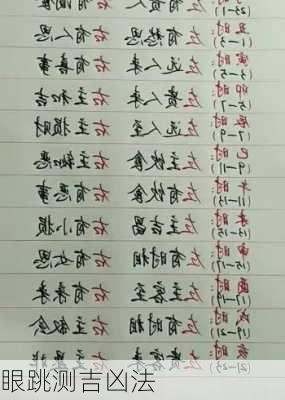 (23-1)
丑时: 左有愁思 右有人思
(1-3)
寅时: 左远人来 右有喜事
(3-5)
卯时: 左贵人来 右主和吉
(5-7)
辰时: 左远人至 右主损财
(7-9)
巳时: 左主饮食 右主恶
(9-11)
午时: 左有饮食 右有恶事
(11-13)
未时: 左主吉昌 右有小损
(13-15)
申时: 左有时相 右有女思
(15-17)
酉时: 左主客至 右有客来
(17-19)
戌时: 左有时相 右主会
(19-21)
亥时: 左贵客来 右主是非
(21-23)
眼跳测吉凶法